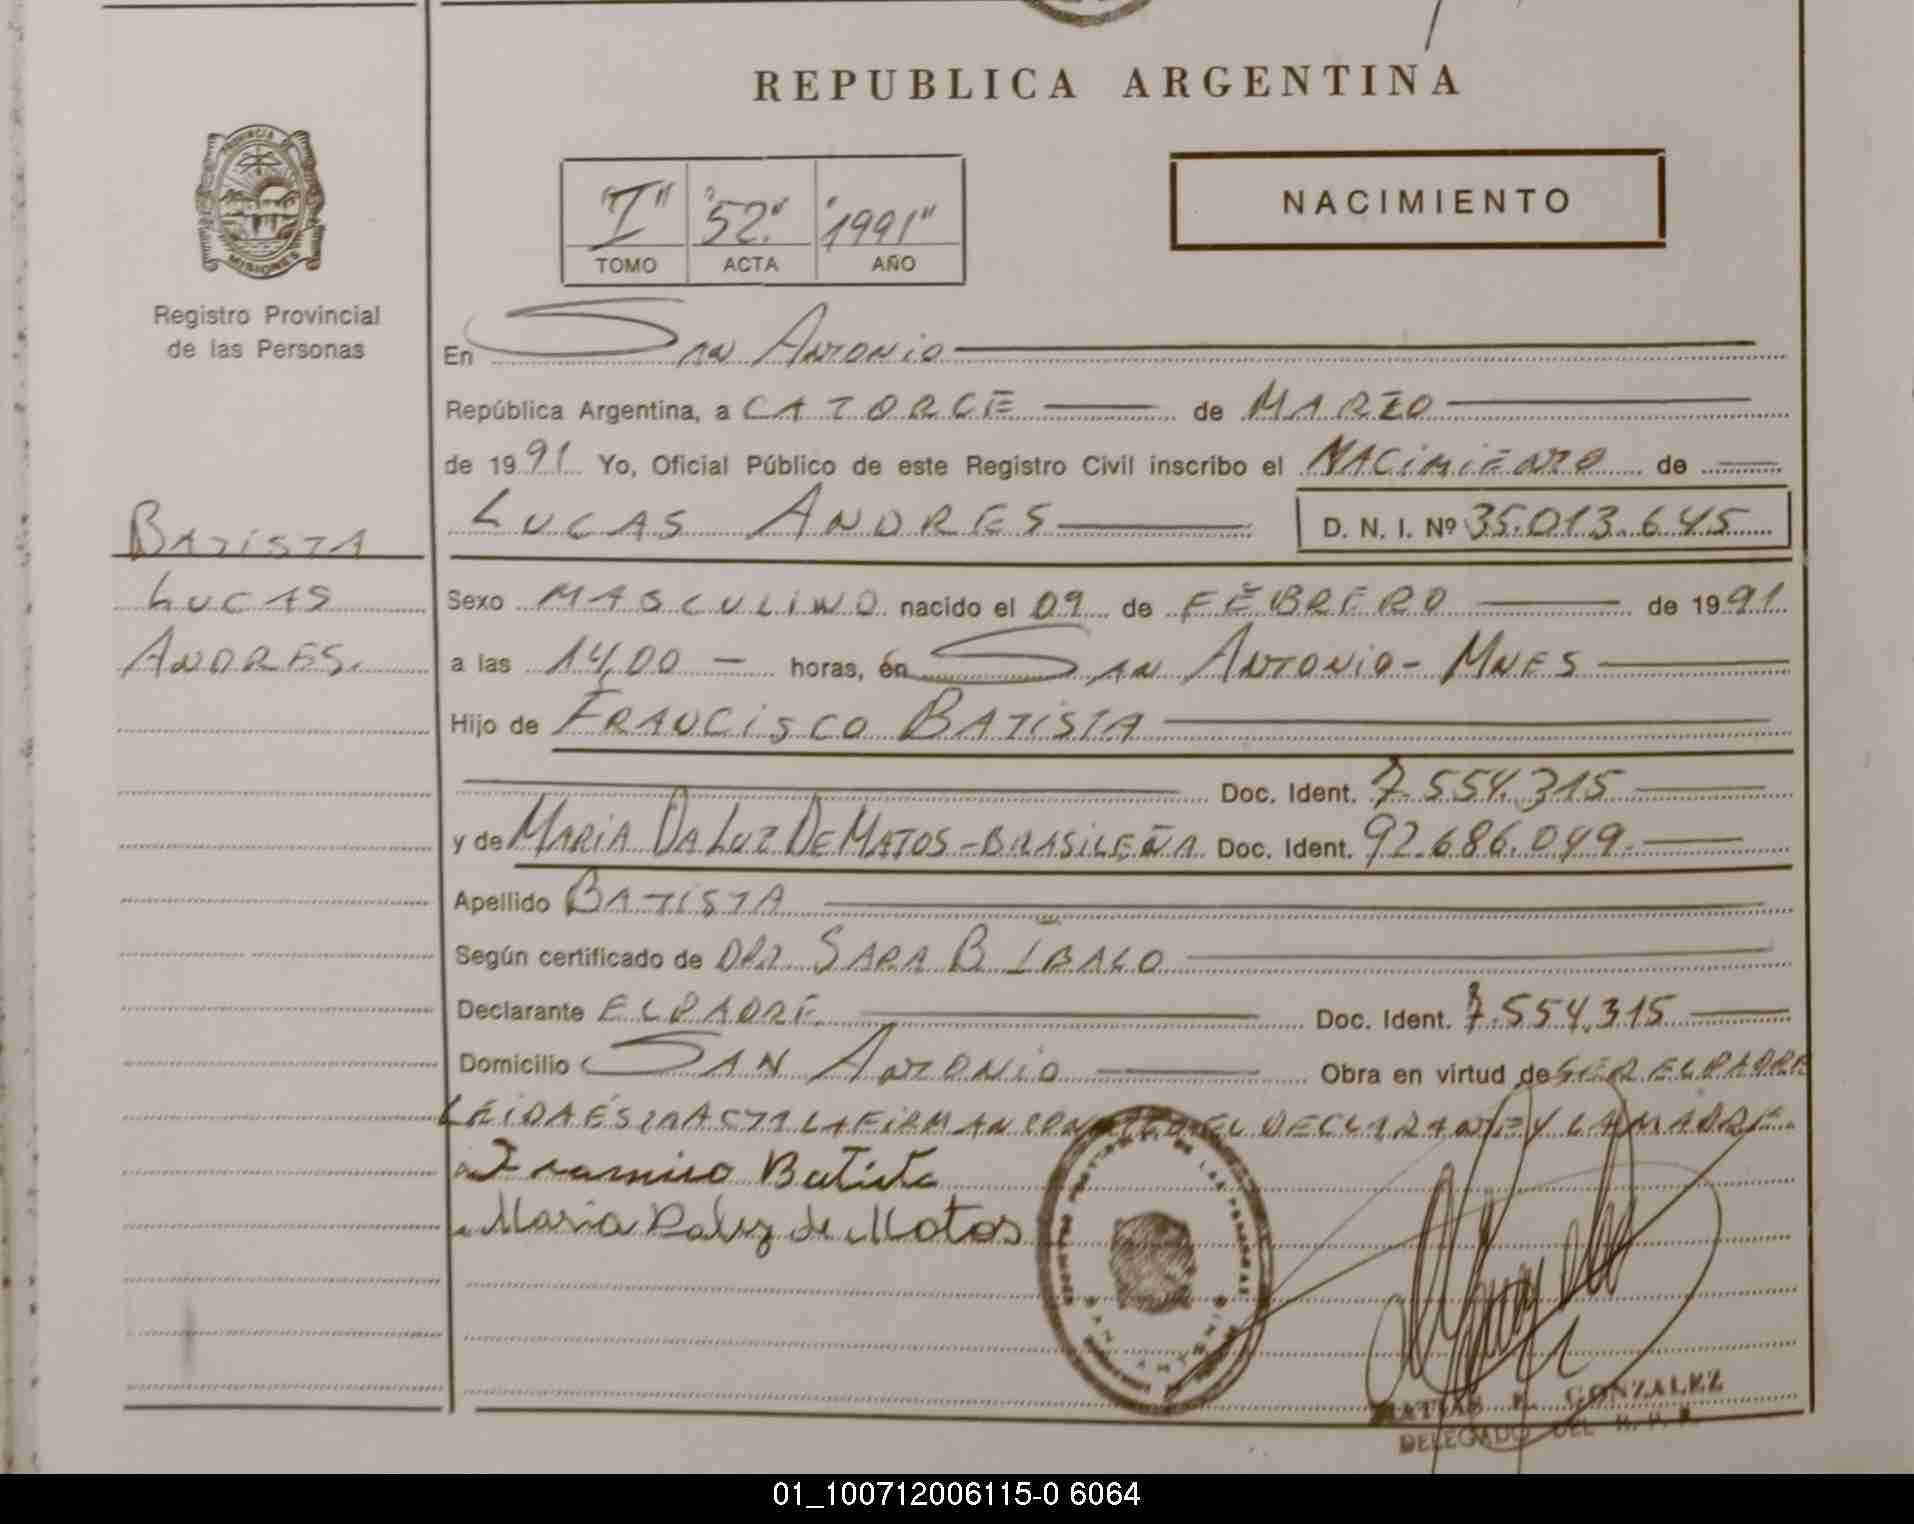 REPUBLICA ARGENTINA
PROVINCIA
MISIONES
Registro Provincial
de las Personas
"I" "52" "1991"
TOMO ACTA AÑO
NACIMIENTO
En SAN ANTONIO
República Argentina, a CATORCE de MARZO
de 1991 Yo, Oficial Público de este Registro Civil inscribo el NACIMIENTO de
LUCAS ANDRES D. N. I. Nº 35.013.645
BATISTA
LUCAS
ANDRES.
Sexo MASCULINO nacido el 09 de FEBRERO de 1991
a las 14,00 horas, en SAN ANTONIO - MNES
Hijo de FRANCISCO BATISTA
Doc. Ident. 7.554.315
y de MARIA DA LUZ DE MATOS - BRASILEÑA Doc. Ident. 92.686.099
Apellido BATISTA
Según certificado de DRA. SARA B. IBALO
Declarante EL PADRE Doc. Ident. 7.554.315
Domicilio SAN ANTONIO Obra en virtud de SER EL PADRE
LEIDA ESTA ACTA LA FIRMAN CONMIGO EL DECLARANTE Y LA MADRE.
Francisco Batista
Maria Daluz de Matos
SAN ANTONIO
MATIAS GONZALEZ
DELEGADO DEL R. P. P.
01_100712006115-0 6064